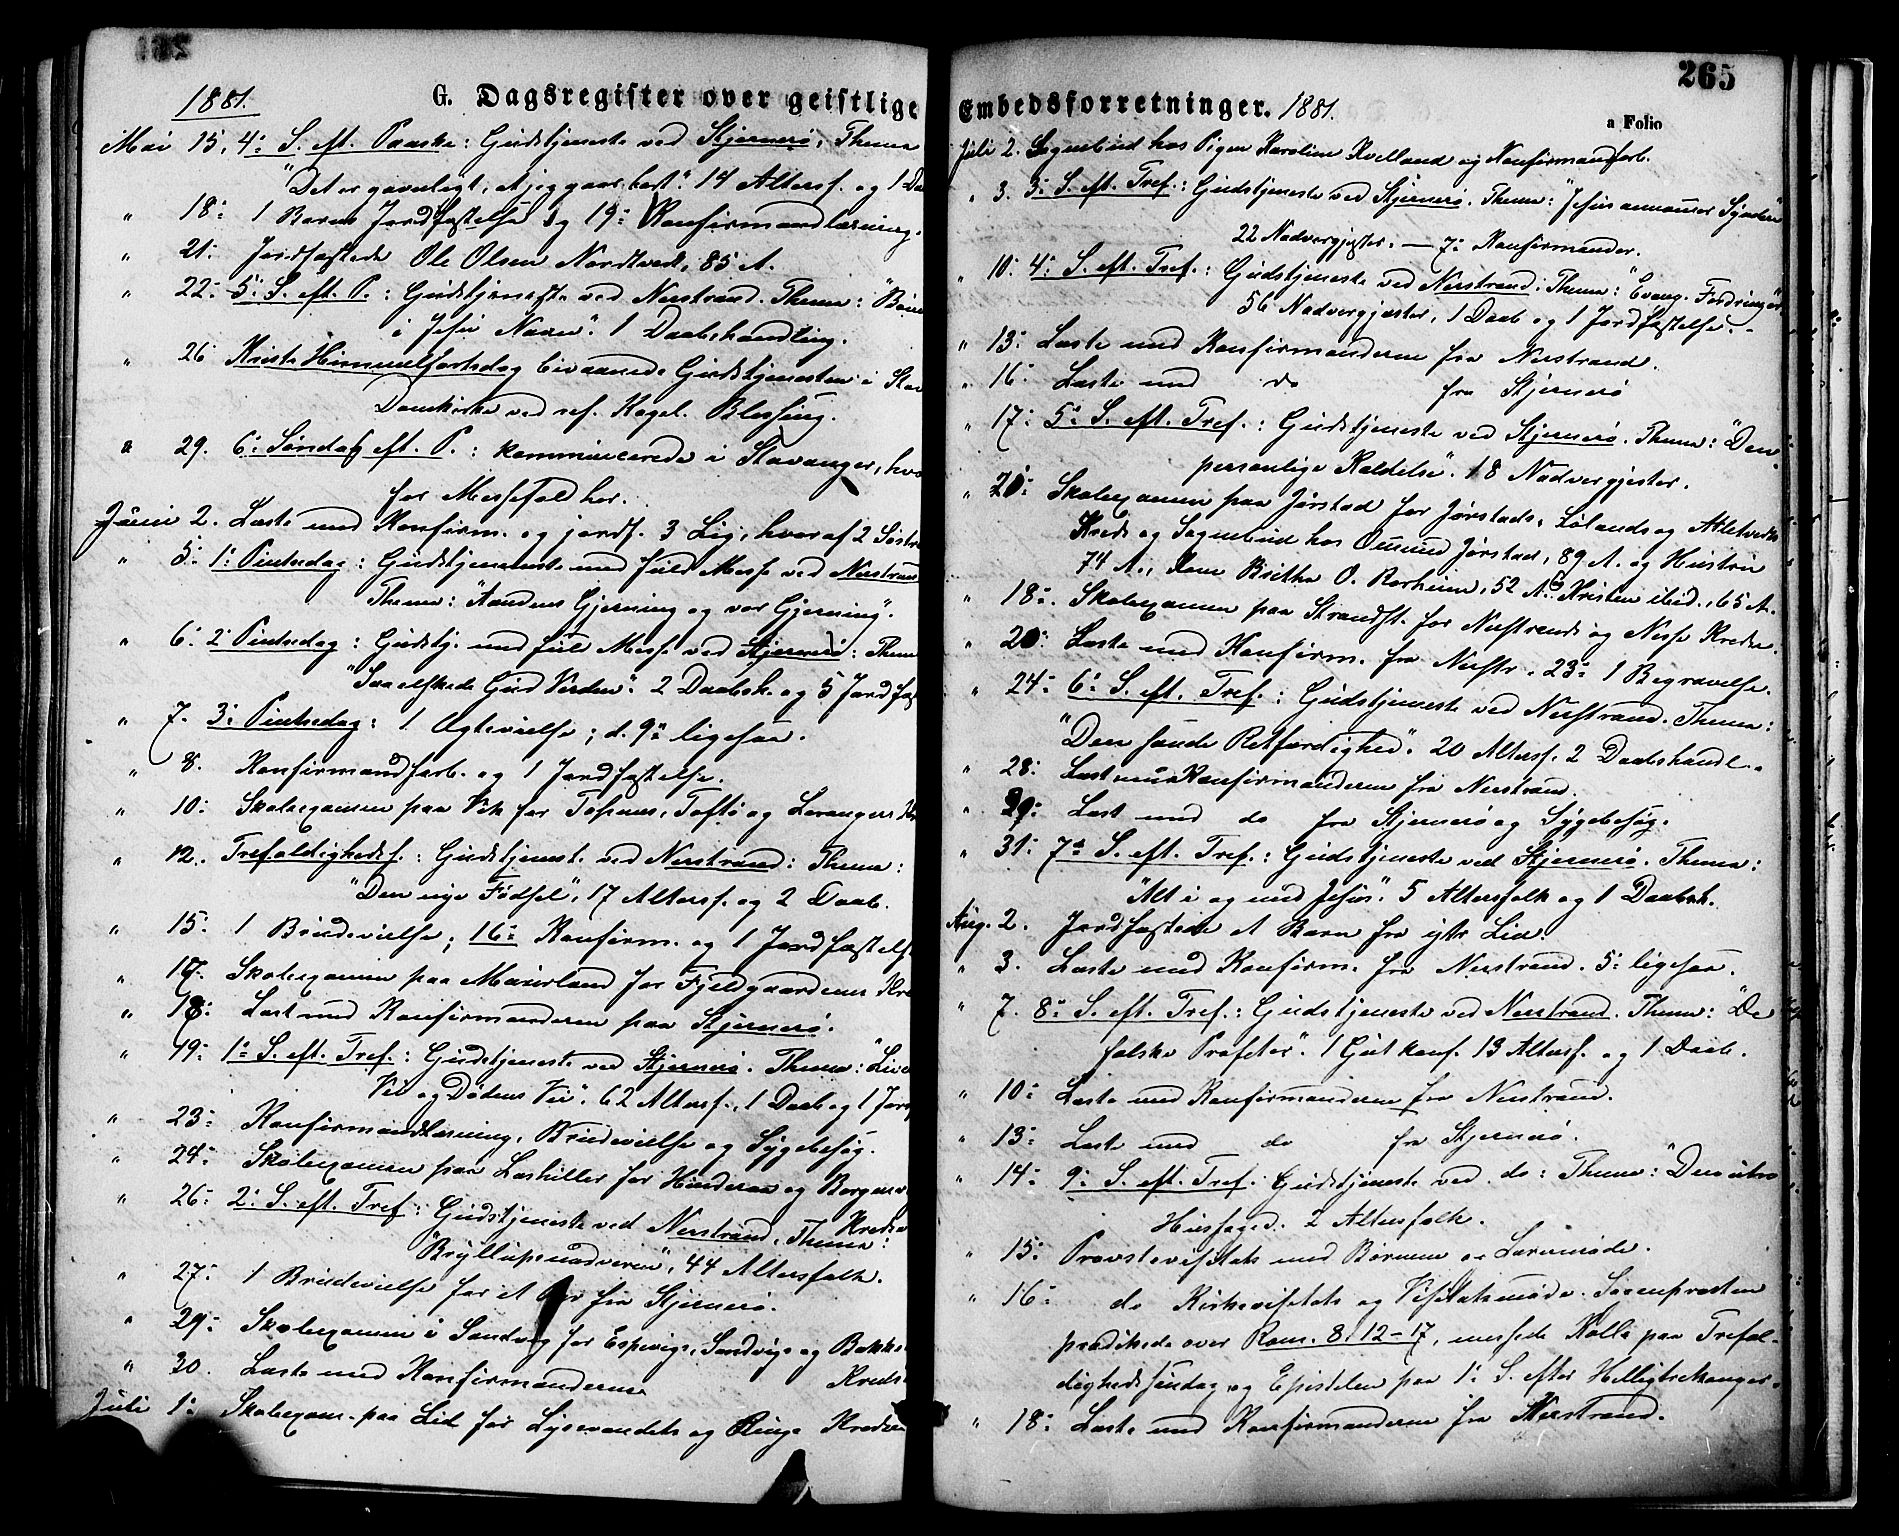 1881.
G. Dagsregister over geistlige
Mai 15, 4: S. eft. Paaske: Gudstjeneste ved Stjernerö: Thema
"Det er gavnligt, at jeg gaar bort". 14 Altersf. og 1 Daa
" 18: 1 Barns Jordfæstelse og 19: Konfirmandlæsning.
" 21: Jordfæstede Ole Olsen Nordtvedt, 85 A.
" 22: 5: S. eft. P.: Gudstjeneste ved Nerstrand. Thema: "Bön
i Jesu Navn". 1 Daabshandling.
" 26 Kristi Himmelfartsdag bivaanede Gudstjenesten i Stav
Domkirke ved res. Kapel. Blessing.
" 29. 6: Söndag eft. P.: kommunicerede i Stavanger, hvo
for Messefald her.
Juni 2. Læste med Konfirm. og jordf. 3 Lig, hvoraf 2 Söstre
" 5: 1: Pintsedag: Gudstjeneste med fuld Messe ved Nerstrand
Thema: "Aandens Gjerning og vor Gjerning".
" 6: 2 Pintsedag: Gudstj. med fuld Messe ved Stjernerö: Thema
"Saa elskede Gud Verden". 2 Daabsh. og 5 Jordfæst
" 7. 3: Pintsedag: 1 Ægtevielse; d. 9: ligesaa.
" 8. Konfirmandforb. og 1 Jordfæstelse.
" 10: Skoleexamen paa Vik for Tofsnes, Toftö og Leranger Kr
" 12. Trefoldighedsf.: Gudstjeneste ved Nerstrand: Thema:
"Den nye Födsel", 17 Altersf. og 2 Daab.
" 15: 1 Brudevielse; 16: Konfirm. og 1 Jordfæstelse
" 17. Skoleexamen paa Mausland for Fjeldgaardenes Kre
" 18: Læst med Konfirmanderne paa Stjernerö.
" 19: 1: S. eft. Tref.: Gudstjeneste ved Stjernerö. Thema: "Live
Vei og Dödens Vei". 62 Altersf., 1 Daab og 1 Jord
" 23: Konfirmandlæsning, Brudevielse og Sygebesög.
" 24: Skoleexamen paa for Hinderaa og Borgen
" 26: 2: S. eft. Tref.: Gudstjeneste ved Nerstrand, Kredse
Thema:
"Bryllupsnadveren", 44 Altersfolk.
" 27: 1 Brudevielse for et Par fra Stjernerö.
" 29: Skoleexamen i Sandvig for Espevigs, Sandvigs og Bakke
" 30. Læste med Konfirmanderne Kreds
Juli 1: Skoleexam. paa Lid for Lysevandets og Kredse
265
Embedsforretninger. 1881.
a Folio
Juli 2. Sognebud hos Pigen Karoline Kvelland og Konfirmandforb.
" 3. 3: S. eft. Tref.: Gudstjeneste ved Stjernerö. Thema: "Jesus annammer Syndere"
22 Nadvergjæster. — 7: Konfirmander.
" 10: 4: S. eft. Tref.: Gudstjeneste ved Nerstrand: Thema: "Evang. Fordringer"
56 Nadvergjæster, 1 Daab og 1 Jordfæstelse.
" 13: Læste med Konfirmanderne fra Nerstrand.
" 16: Læste med do fra Stjernerö
" 17: 5: S. eft. Tref.: Gudstjeneste ved Stjernerö. Thema: "Den
personlige Kaldelse". 18 Nadvergjester.
" 20: Skoleexamen paa Jörstad for Jörstads, Lölands og
Kreds og Sognebud hos Jörstad, 89 A. og Hustru
74 A., Kone Britha O. Barheim, 52 A. & Kristen ibid., 65 A.
" 18: Skoleexamen paa Strandst. for Nerstrands og Næsse Kredse.
" 20: Læste med Konfirm. fra Nerstr. 23: 1 Begravelse.
" 24: 6: S. eft. Tref.: Gudstjeneste ved Nerstrand. Thema:
"Den sande Retfærdighed". 20 Altersf. 2 Daabshandl.
" 28: Læst med Konfirmanderne fra Nerstrand.
" 29: Læst med do fra Stjernerö og Sygebesög.
" 31: 7: S. eft. Tref.: Gudstjeneste ved Stjernerö. Thema:
"Alt i og med Jesus". 5 Altersfolk og 1 Daabsh.
Aug. 2. Jordfæstede et Barn fra ytr Lid.
" 3. Læste med Konfirm. fra Nerstrand. 5: ligesaa.
" 7. 8: S. eft. Tref.: Gudstjeneste ved Nerstrand. Thema: "De
falske Profeter". 1 Gutkonf. 13 Altersf. og 1 Daab.
" 10: Læste med Konfirmanderne fra Nerstrand.
" 13: Læst med do fra Stjernerö.
" 14: 9: S. eft. Tref. Gudstjeneste ved do: Thema: "Den utro
Husfoged. 2 Altersfolk.
" 15: Provstevisitats med Börnene og Læremöde.
" 16: do Kirkevisitats og Visitatsmöde. Sognepresten
prædikede over Rom. 8, 12-17, messede Kolle paa Trefol-
dighedssöndag og Epistelen paa 1: S. efter Helligtrekonger.
" 18: Læste med Konfirmanderne fra Nerstrand.